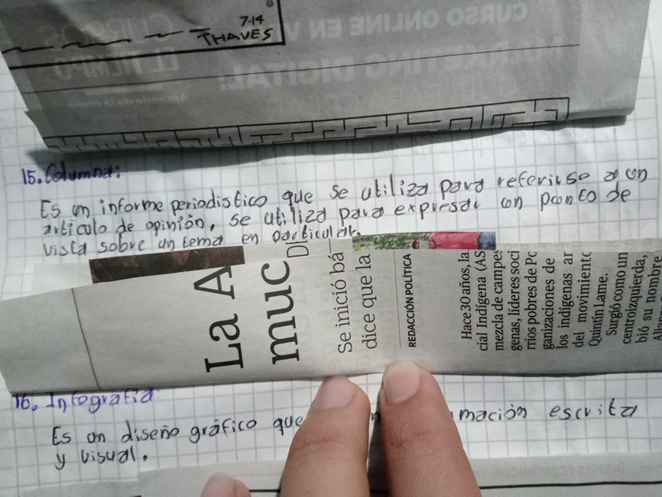 7-14
THAVES
CURSO ONLINE EN VI
MARKETING DIGITAL:
CURSOS
EL TIEMPO
15. Columna:
Es un informe periodistico que se utiliza para referirse a un
artículo de opinión, se utiliza para expresar un punto de
vista sobre un tema en particular.
La A
muc
Se inició bá
dice que la
REDACCIÓN POLÍTICA
Hace 30 años, la
cial Indígena (AS
mezcla de campes
genas, líderes soci
rrios pobres de Po
ganizaciones de
los indígenas ar
del movimiento
Quintín Lame.
Surgió como un
centroizquierda,
bió su nombre
16. Infografia
Es un diseño gráfico que mación escrita
y visual.